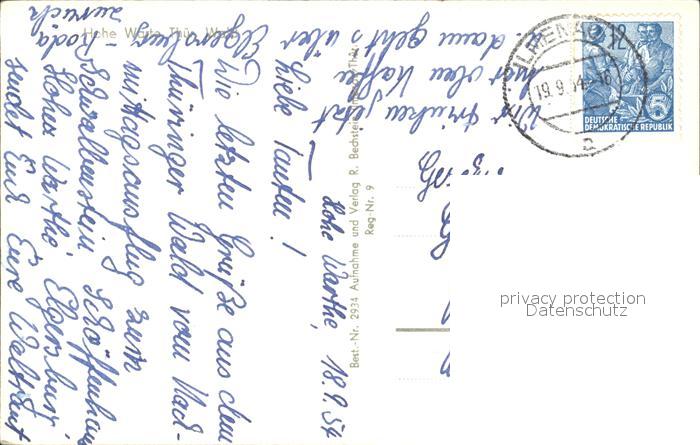 Hohe Warte Thür. Wald
Hohe Warthe, 18.9.54
Liebe Tanten!
Die letzten Grüße aus dem
Thüringer Wald vom Nach-
mittagsausflug zum
Schwalbenstein, Schöffenhaus
Hohen Warthe, Elgersburg
sendet Euch Eure Waltraut
Wir trinken jetzt
hier oben Kaffee
u. dann geht's über
Elgersburg
- Roda
zurück
Best.-Nr. 2934 Aufnahme und Verlag R. Bechstein,
Reg-Nr. 9
ILMENAU
19.9.54
a
12
5
DEUTSCHE
DEMOKRATISCHE REPUBLIK
privacy protection
Datenschutz